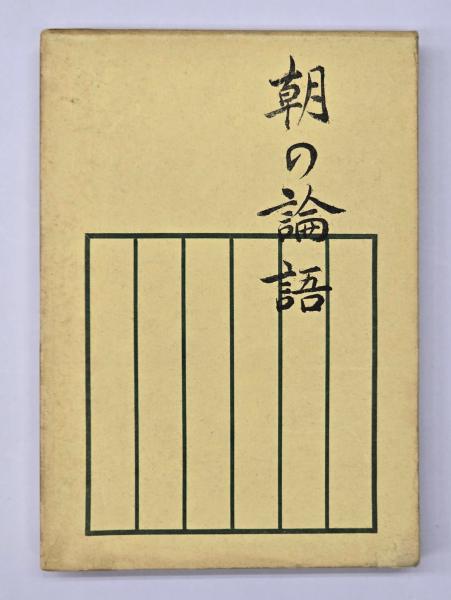 朝の論語